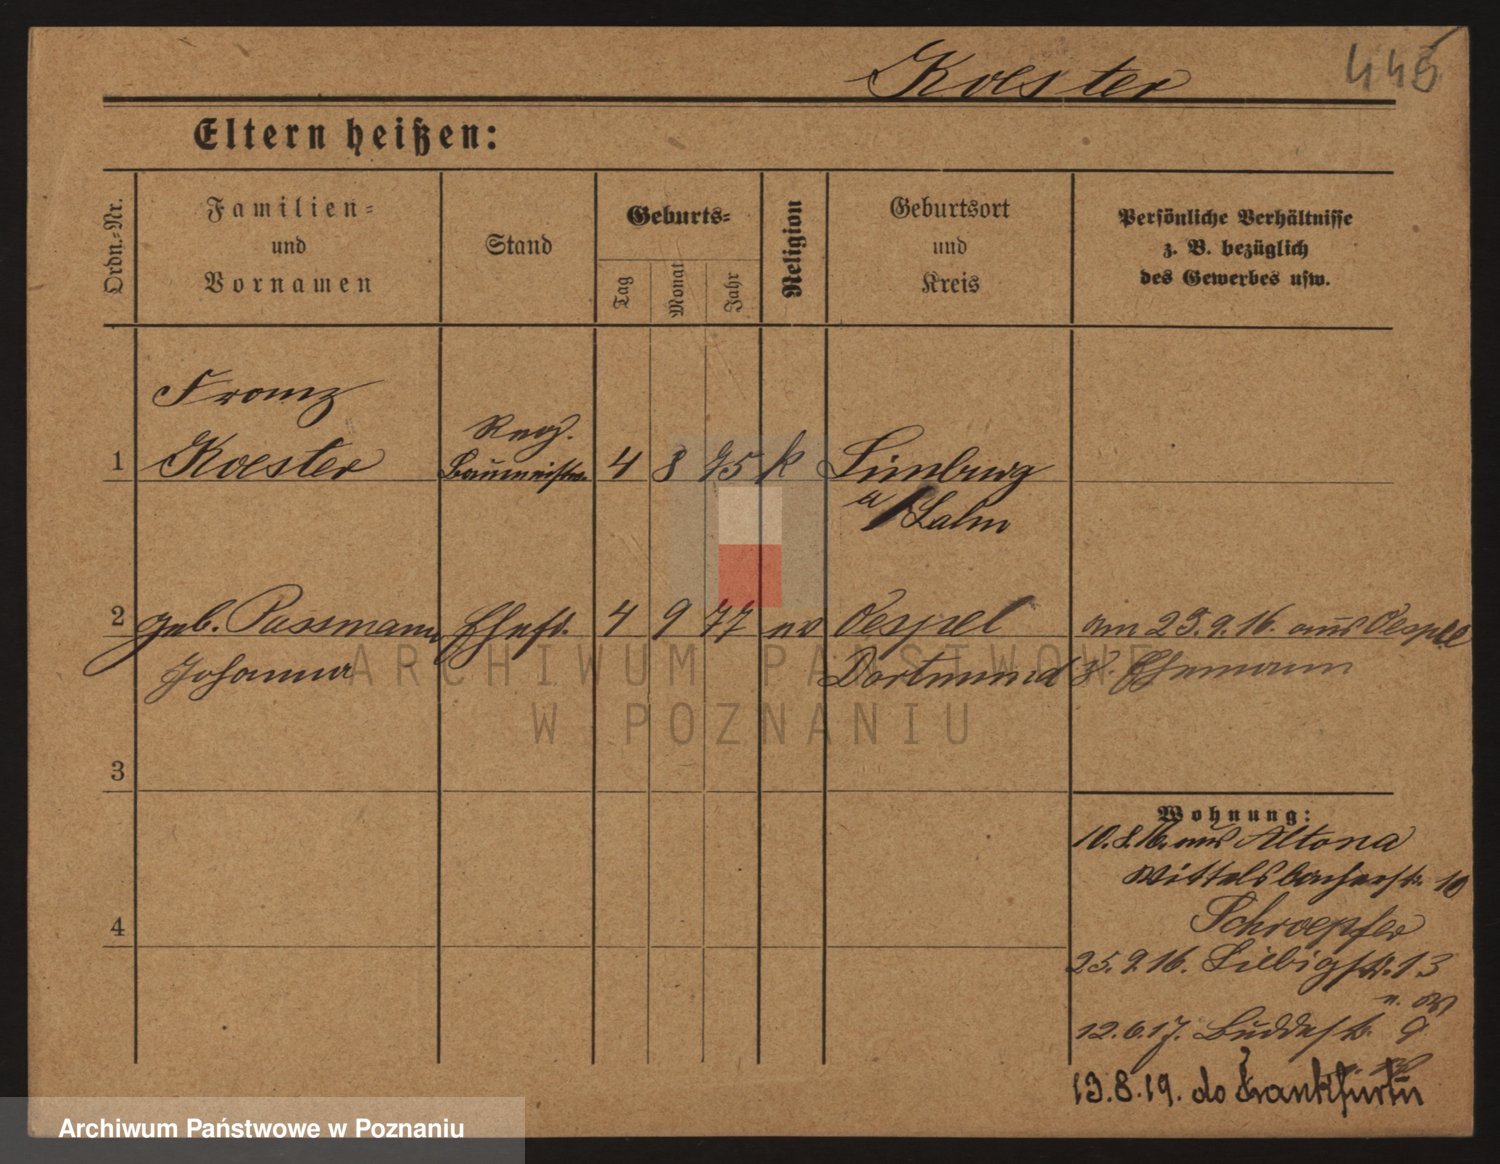 Koester
445
Eltern heißen:
Ordn.-Nr.
Familien-
und
Vornamen
Stand
Geburts-
Tag
Monat
Jahr
Religion
Geburtsort
und
Kreis
Persönliche Verhältnisse
z. B. bezüglich
des Gewerbes usw.
Franz
1 Koester Reg. Baumeister 4 8 75 k Limburg
a/Lahn
2 geb. Passmann Ehefr. 4 9 77 ev Oespel am 25.9.16. aus Oespel
Johanna Dortmund z. Ehemann
3
Wohnung:
10.8.16. aus Altona
Wittelsbacherstr. 10
Schroepfer
4
25.9.16. Liebigstr. 13
12.6.17. Buddestr. 9
13.8.19. do Frankfurt
ARCHIWUM PAŃSTWOWE
W POZNANIU
Archiwum Państwowe w Poznaniu